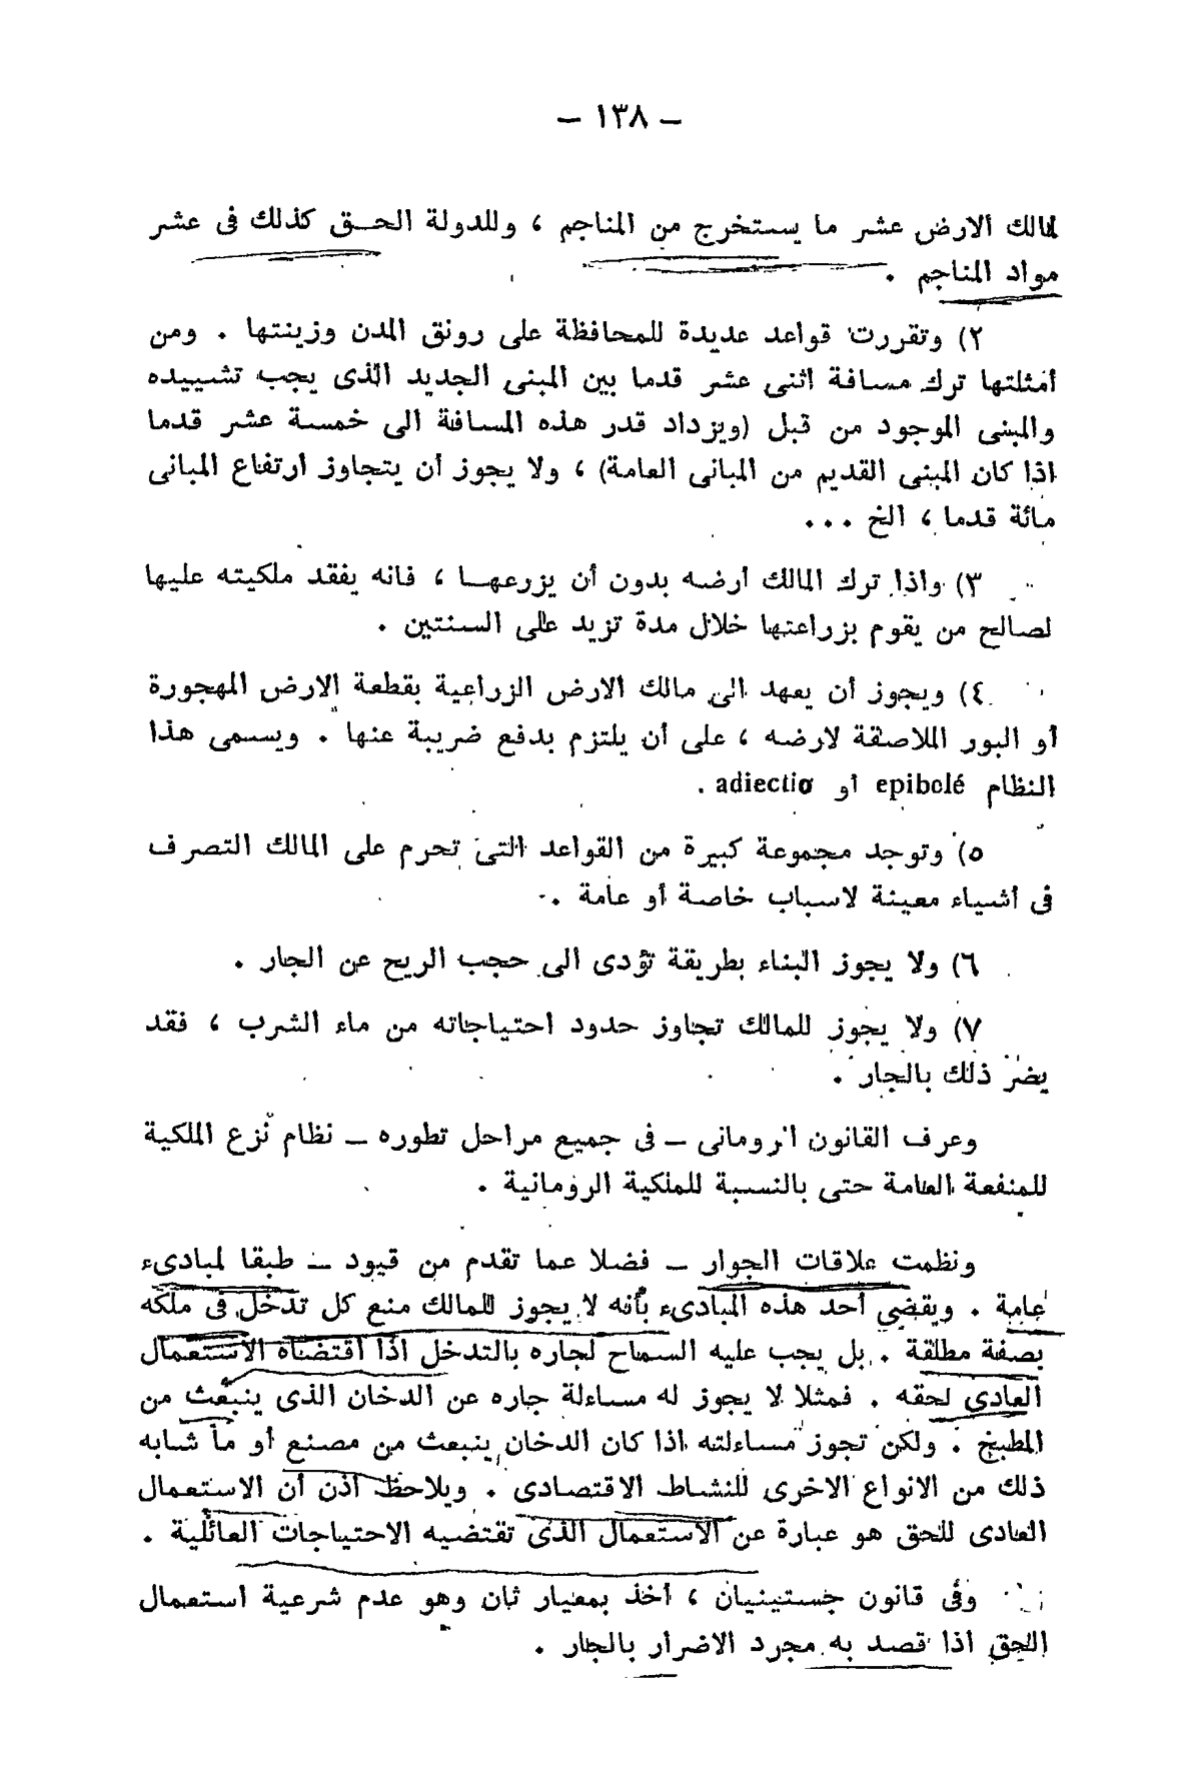 — ١٣٨ —
لمالك الارض عشر ما يستخرج من المناجم ، وللدولة الحق كذلك فى عشر
مواد المناجم .
٢) وتقررت قواعد عديدة للمحافظة على رونق المدن وزينتها . ومن
أمثلتها ترك مسافة اثنى عشر قدما بين المبنى الجديد الذى يجب تشييده
والمبنى الموجود من قبل (ويزداد قدر هذه المسافة الى خمسة عشر قدما
اذا كان المبنى القديم من المبانى العامة) ، ولا يجوز أن يتجاوز ارتفاع المبانى
مائة قدما ، الخ ...
٣) واذا ترك المالك أرضه بدون أن يزرعها ، فانه يفقد ملكيته عليها
لصالح من يقوم بزراعتها خلال مدة تزيد على السنتين .
٤) ويجوز أن يعهد الى مالك الارض الزراعية بقطعة الارض المهجورة
أو البور الملاصقة لارضه ، على أن يلتزم بدفع ضريبة عنها . ويسمى هذا
النظام epibolé أو adiectio .
٥) وتوجد مجموعة كبيرة من القواعد التى تحرم على المالك التصرف
فى أشياء معينة لاسباب خاصة أو عامة .
٦) ولا يجوز البناء بطريقة تؤدى الى حجب الريح عن الجار .
٧) ولا يجوز للمالك تجاوز حدود احتياجاته من ماء الشرب ، فقد
يضر ذلك بالجار .
وعرف القانون الرومانى — فى جميع مراحل تطوره — نظام نزع الملكية
للمنفعة العامة حتى بالنسبة للملكية الرومانية .
ونظمت علاقات الجوار — فضلا عما تقدم من قيود — طبقا لمبادىء
عامة . ويقضى أحد هذه المبادىء بأنه لا يجوز للمالك منع كل تدخل فى ملكه
بصفة مطلقة . بل يجب عليه السماح لجاره بالتدخل اذا اقتضاه الاستعمال
العادى لحقه . فمثلا لا يجوز له مساءلة جاره عن الدخان الذى ينبعث من
المطبخ . ولكن تجوز مساءلته اذا كان الدخان ينبعث من مصنع أو ما شابه
ذلك من الانواع الاخرى للنشاط الاقتصادى . ويلاحظ اذن أن الاستعمال
العادى للحق هو عبارة عن الاستعمال الذى تقتضيه الاحتياجات العائلية .
وفى قانون جستينيان ، أخذ بمعيار ثان وهو عدم شرعية استعمال
الحق اذا قصد به مجرد الاضرار بالجار .